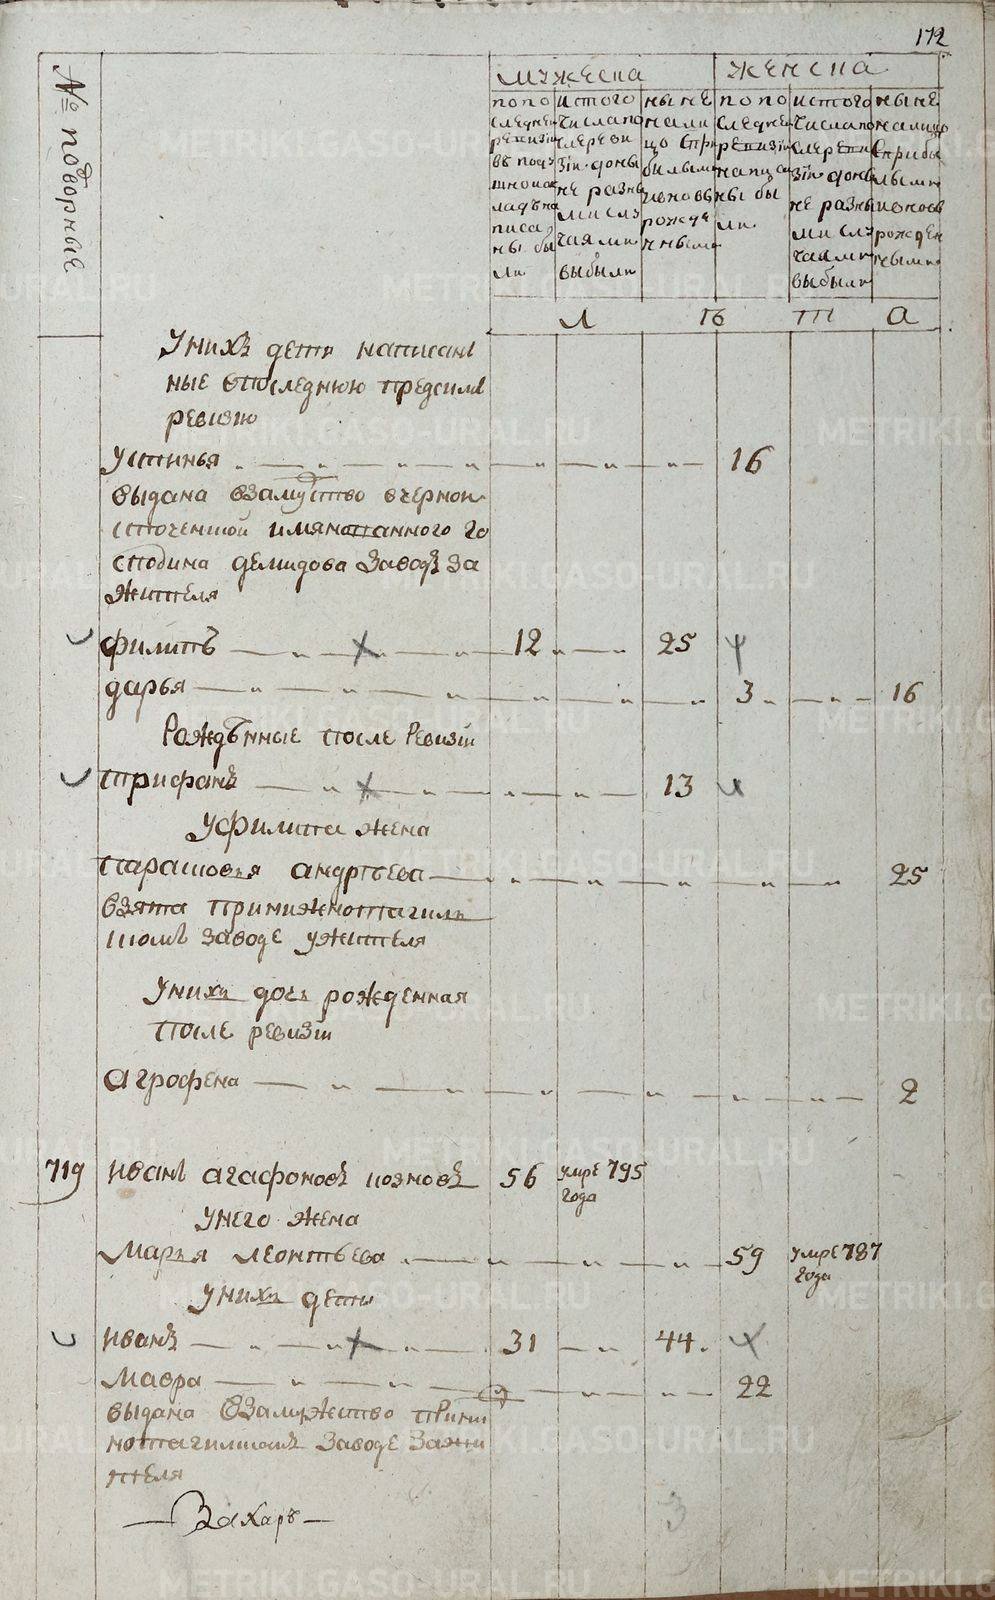 172
№ подворные
мужеска
женска
по по
следней
ревизии
в подушной оклад на
писаны бы
ли
ис того
числа по
сле реви
зіи разны
ми слу
чаями
выбыли
ныне
на ли
цо с при
былыми
и вновь
рожде
нными
по по
следней
ревизіи
написа
ны бы
ли
ис того
числа по
сле реви
зіи разны
ми слу
чаями
выбыли
ныне
на лицо
с прибы
лыми
и вновь
рожден
ными
Л Ѣ Т А
У нихъ дети написан
ные в последнюю пред сим
ревизию
Устинья 16
выдана взамужство в черно
источенской имянованного го
сподина демидова заводъ за
жителя
филипъ 12 25
дарья 3 16
Рождѣнные после Ревизіи
Трифанъ 13
У филипа жена
Парасковья андрѣева 25
взята при нижнотагиль
скомъ заводе у жителя
У нихъ дочь рожденная
после ревизіи
агрофена 2
719 иванъ агафоновъ 56 умре 795
года
У него жена
Марья леонтьева 59 умре 787
года
У нихъ дети
иванъ 31 44.
Мавра 22
выдана взамужство при ни
жнотагилскомъ заводе за жи
теля
Захаръ
3
METRIKI.GASO-URAL.RU